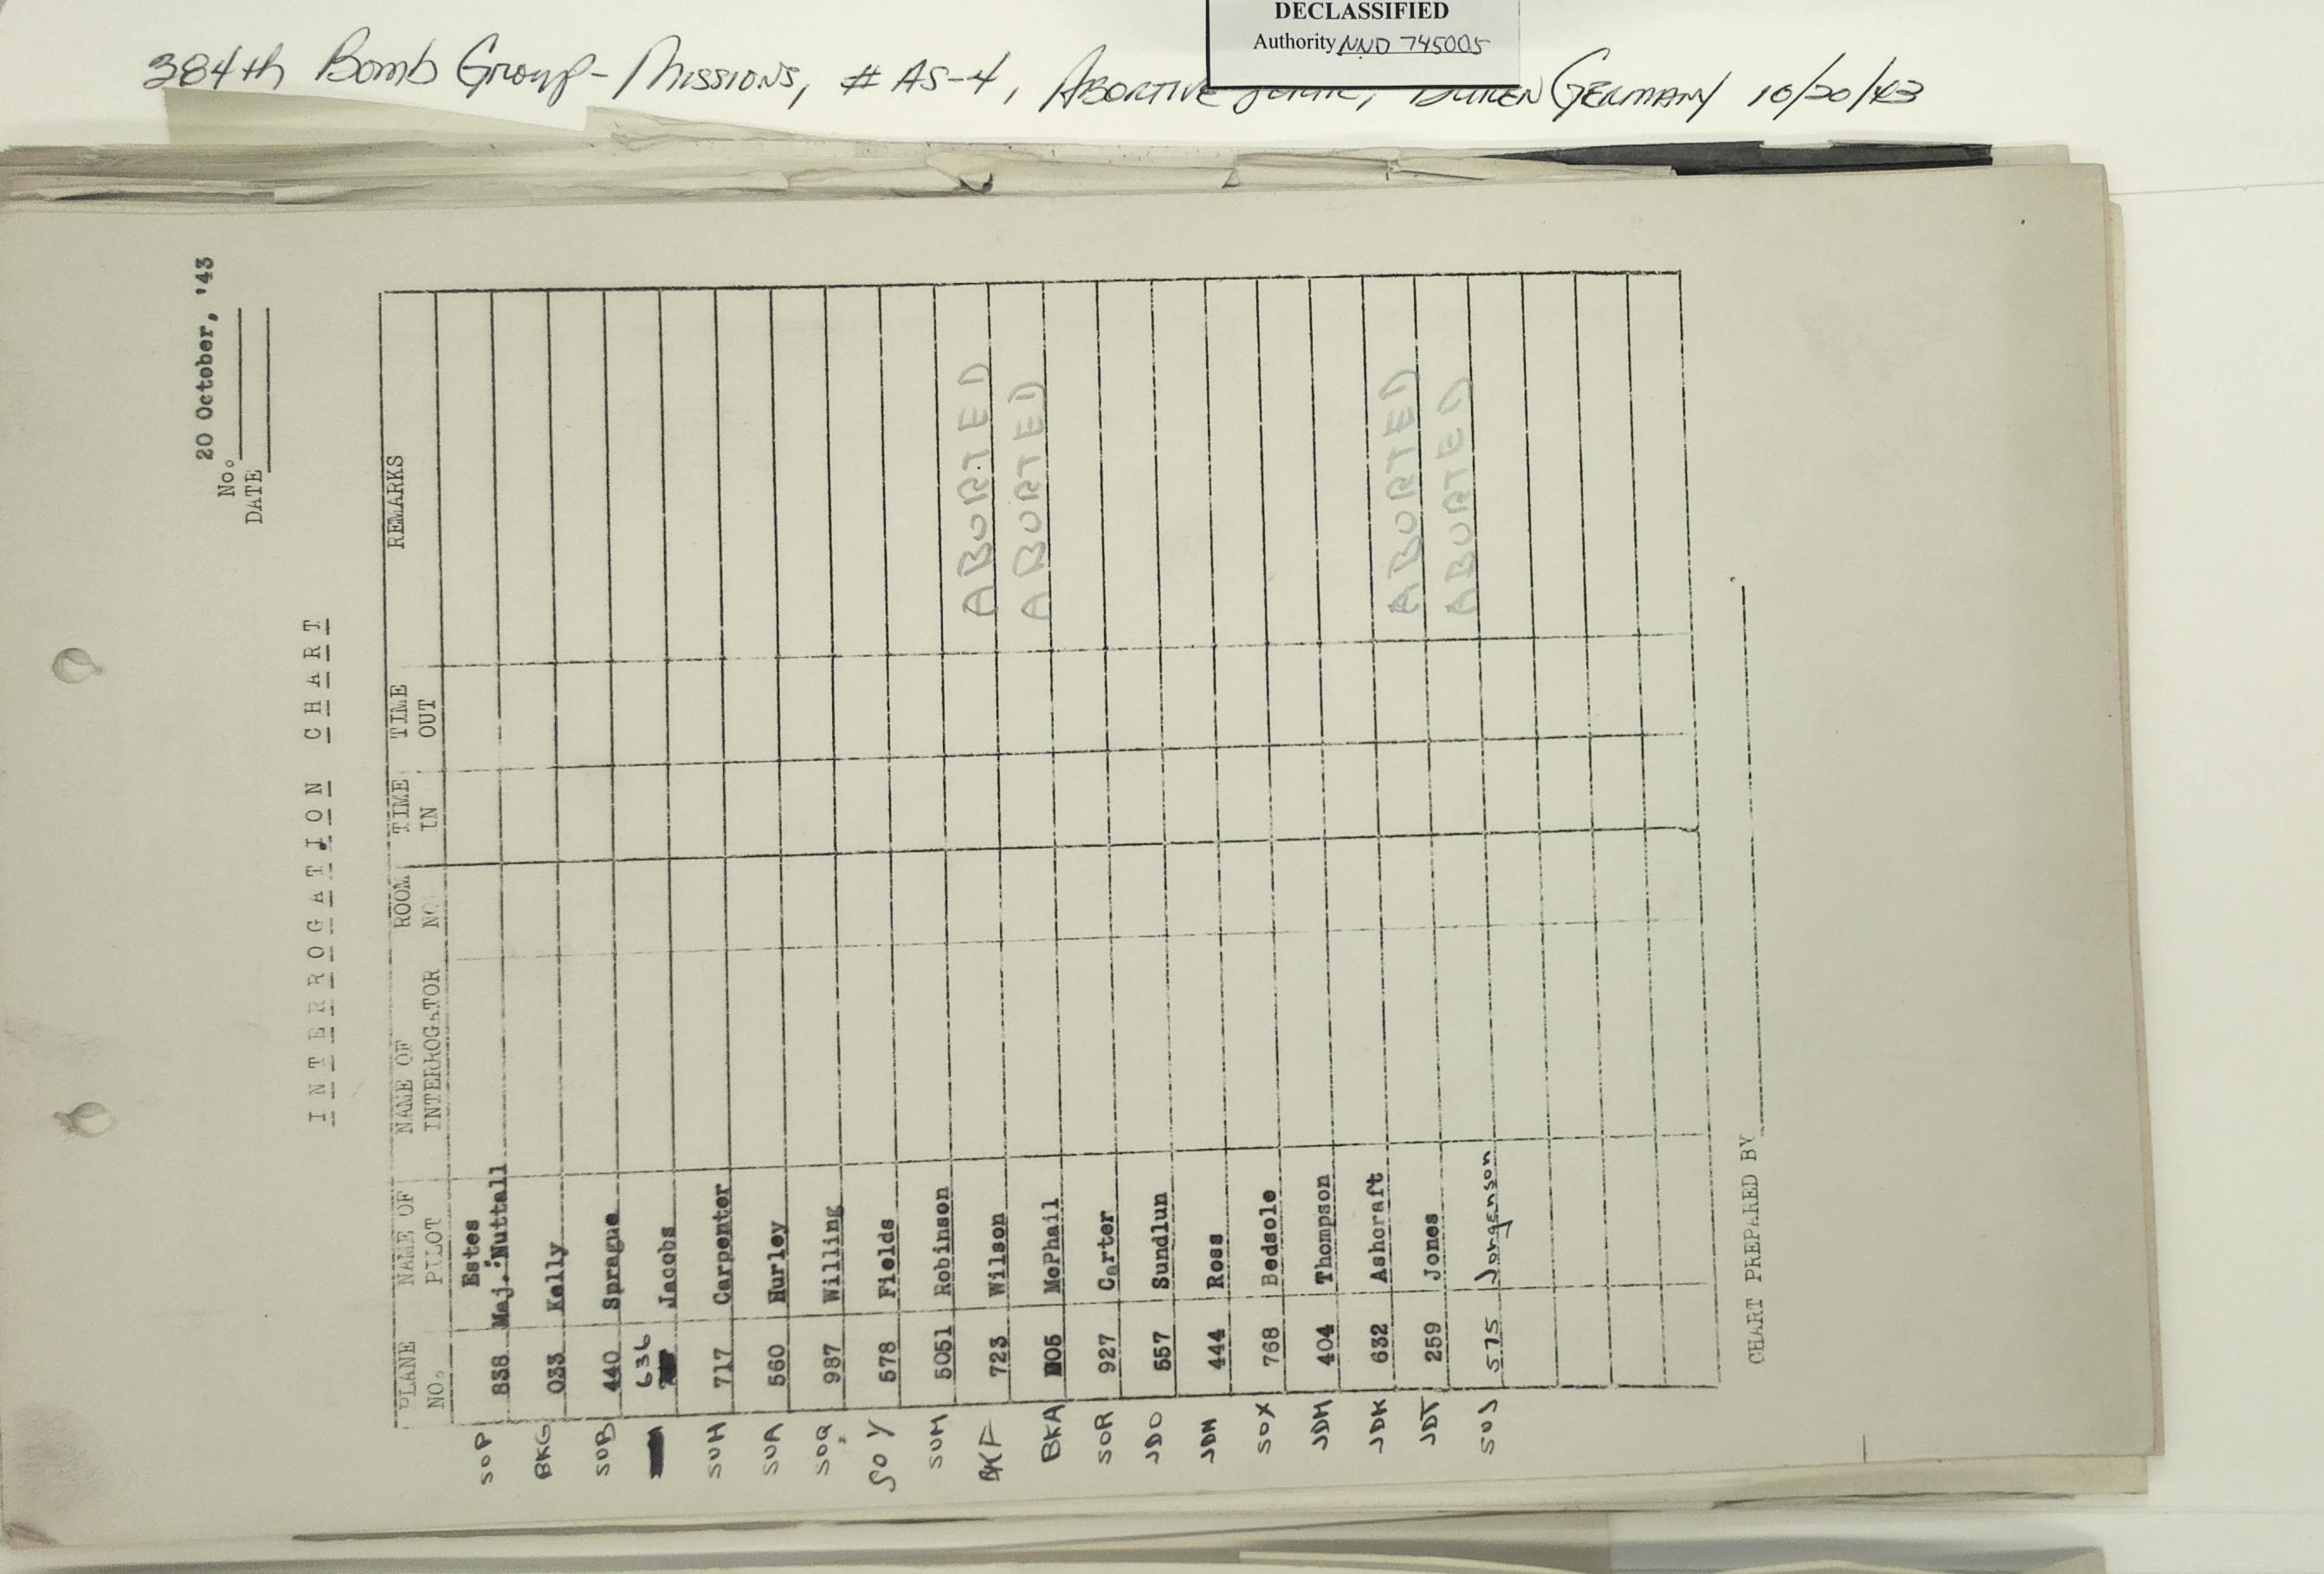 DECLASSIFIED
Authority NND 745005
384th Bomb Group - Missions, # AS-4, Abortive Germany 10/20/43
20 October, '43
No.
DATE
INTERROGATION CHART
PLANE NO. NAME OF PILOT NAME OF INTERROGATOR ROOM NO. TIME IN TIME OUT REMARKS
Estes
SOP 838 Maj. Nuttall
BKG 033 Kelly
SOB 440 Sprague
636 Jacobs
SUH 717 Carpenter
SUA 560 Hurley
SOQ 987 Willing
SOY 578 Fields
SUM 5051 Robinson ABORTED
BKF 723 Wilson ABORTED
BKA 05 McPhail
SOR 927 Carter
JDO 557 Sundlun
444 Ross
SOX 768 Bedsole
JDM 404 Thompson
JDK 632 Ashcraft ABORTED
JDT 259 Jones ABORTED
SUJ 575 Jorgenson
CHART PREPARED BY